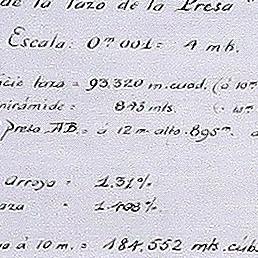 de la Taza de la Presa
Escala: 0m 001 = 4 mts.
icie taza = 93,320 m. cuad. (á 10m
pirámide = 845 mts.
Presa AB = á 12 m. alto. 895m.
Arroyo = 1.31%
aza " 1.488%
á 10 m. = 184,552 mts. cúb